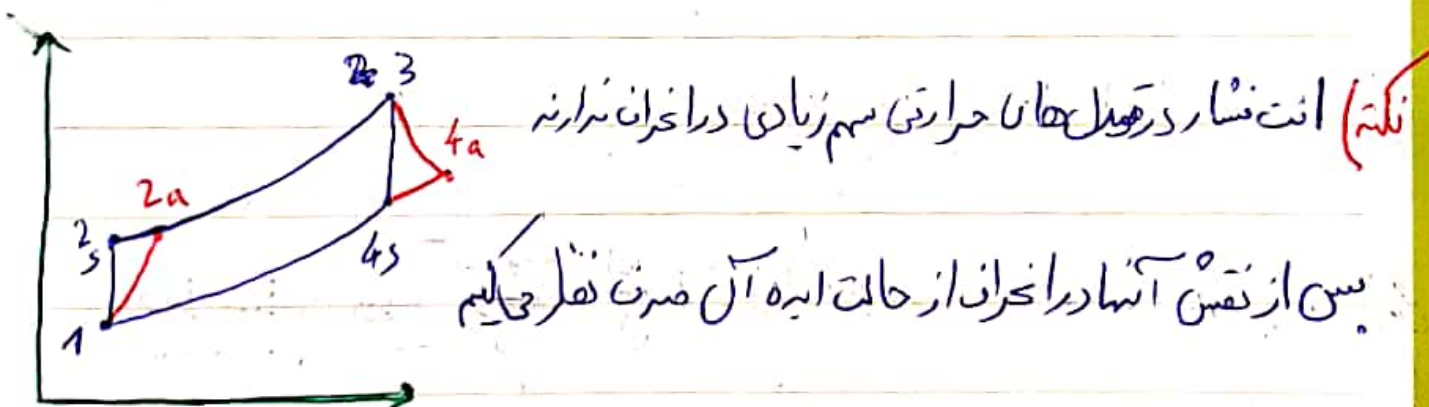 3
نکته) افت فشار در مبدل های حرارتی سهم زیادی در انحراف ندارند
4a
2a
2s
4s
پس از نقش آنها در انحراف از حالت ایده آل صرف نظر می‌کنیم
1